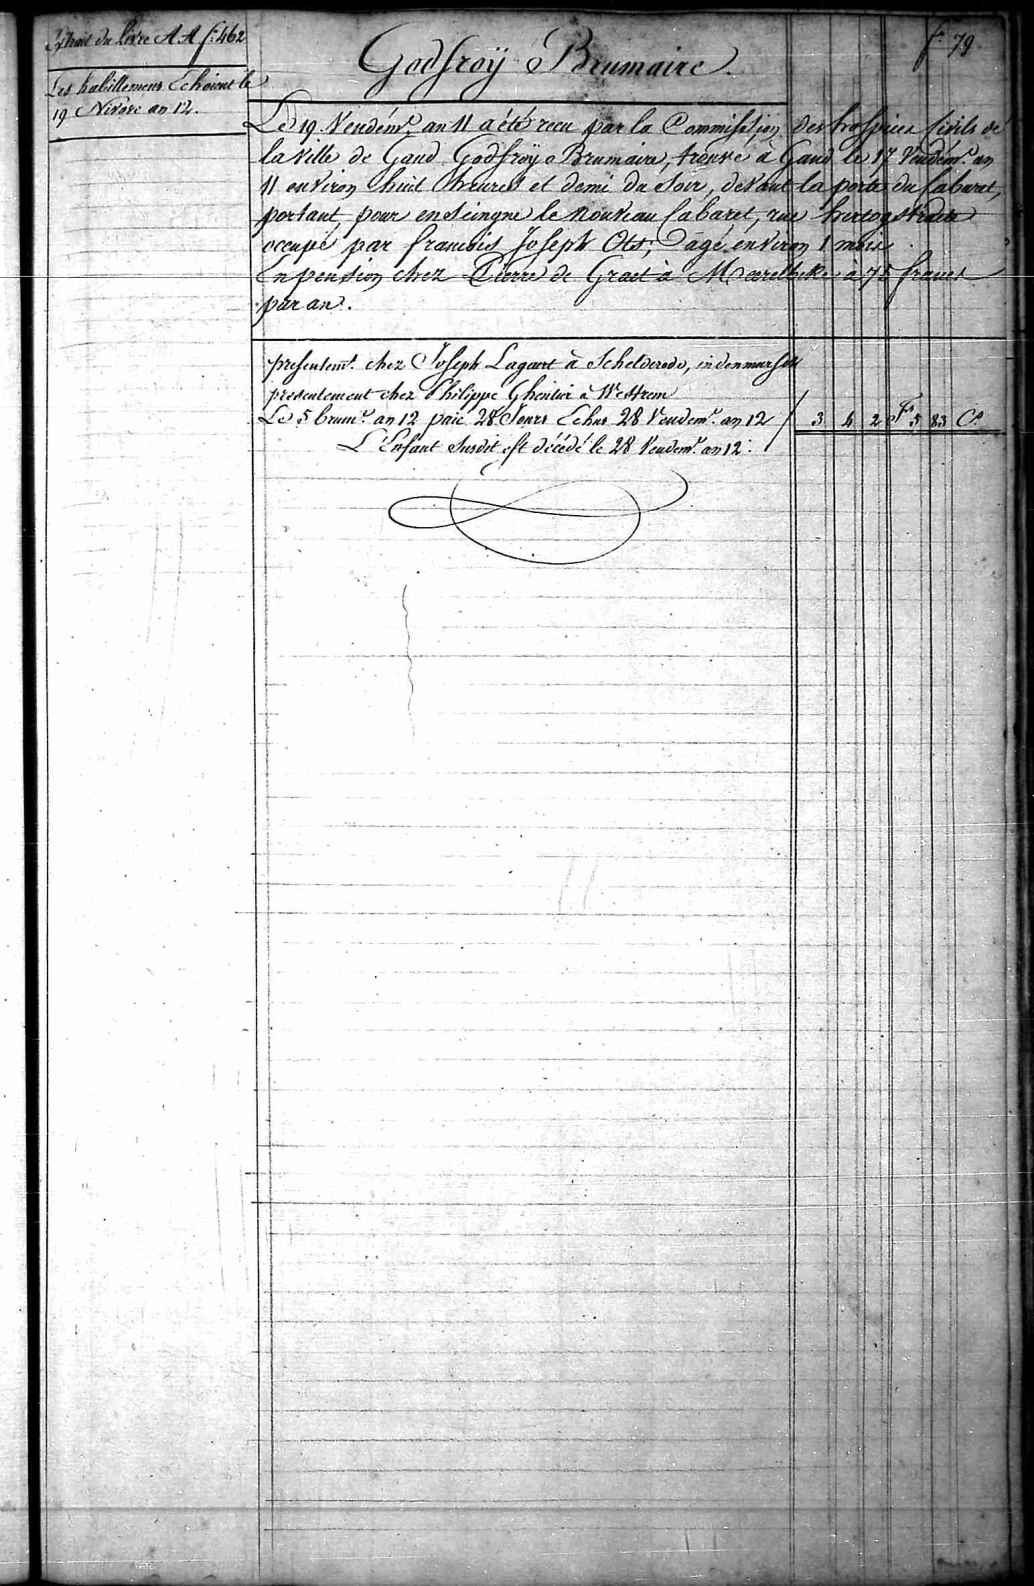 Extrait du Livre AA f.° 462
f.° 79
Godfroÿ Brumaire.
Les habillemens Echoient le
19 Nivose an 12.
Le 19 Vendém.e an 11 a été recu par la Commission des hospices Civils de
la ville de Gand Godfroÿ Brumaire, trouvé à Gand le 17 Vendém.e an
11 environ huit heures et demi du Soir, devant la porte du Cabaret,
portant, pour enseingne le nouveau Cabaret, rue hertogstraete
occupé par francois Joseph Ots; agé environ 1 mois.
En pension chez Pierre de Graet à Meerelbeke à 75 francs
par an.
presentem.t chez Joseph Lagaert à Schelderode,
presentement chez Philippe Ghentier à Westrem
Le 5 brum.e an 12 paié 28 Jours Echus 28 Vendem.e an 12 / 3 4 2 Fs 5 83 C.s
L'Enfant Susdit est décédé le 28 Vendem.e an 12.